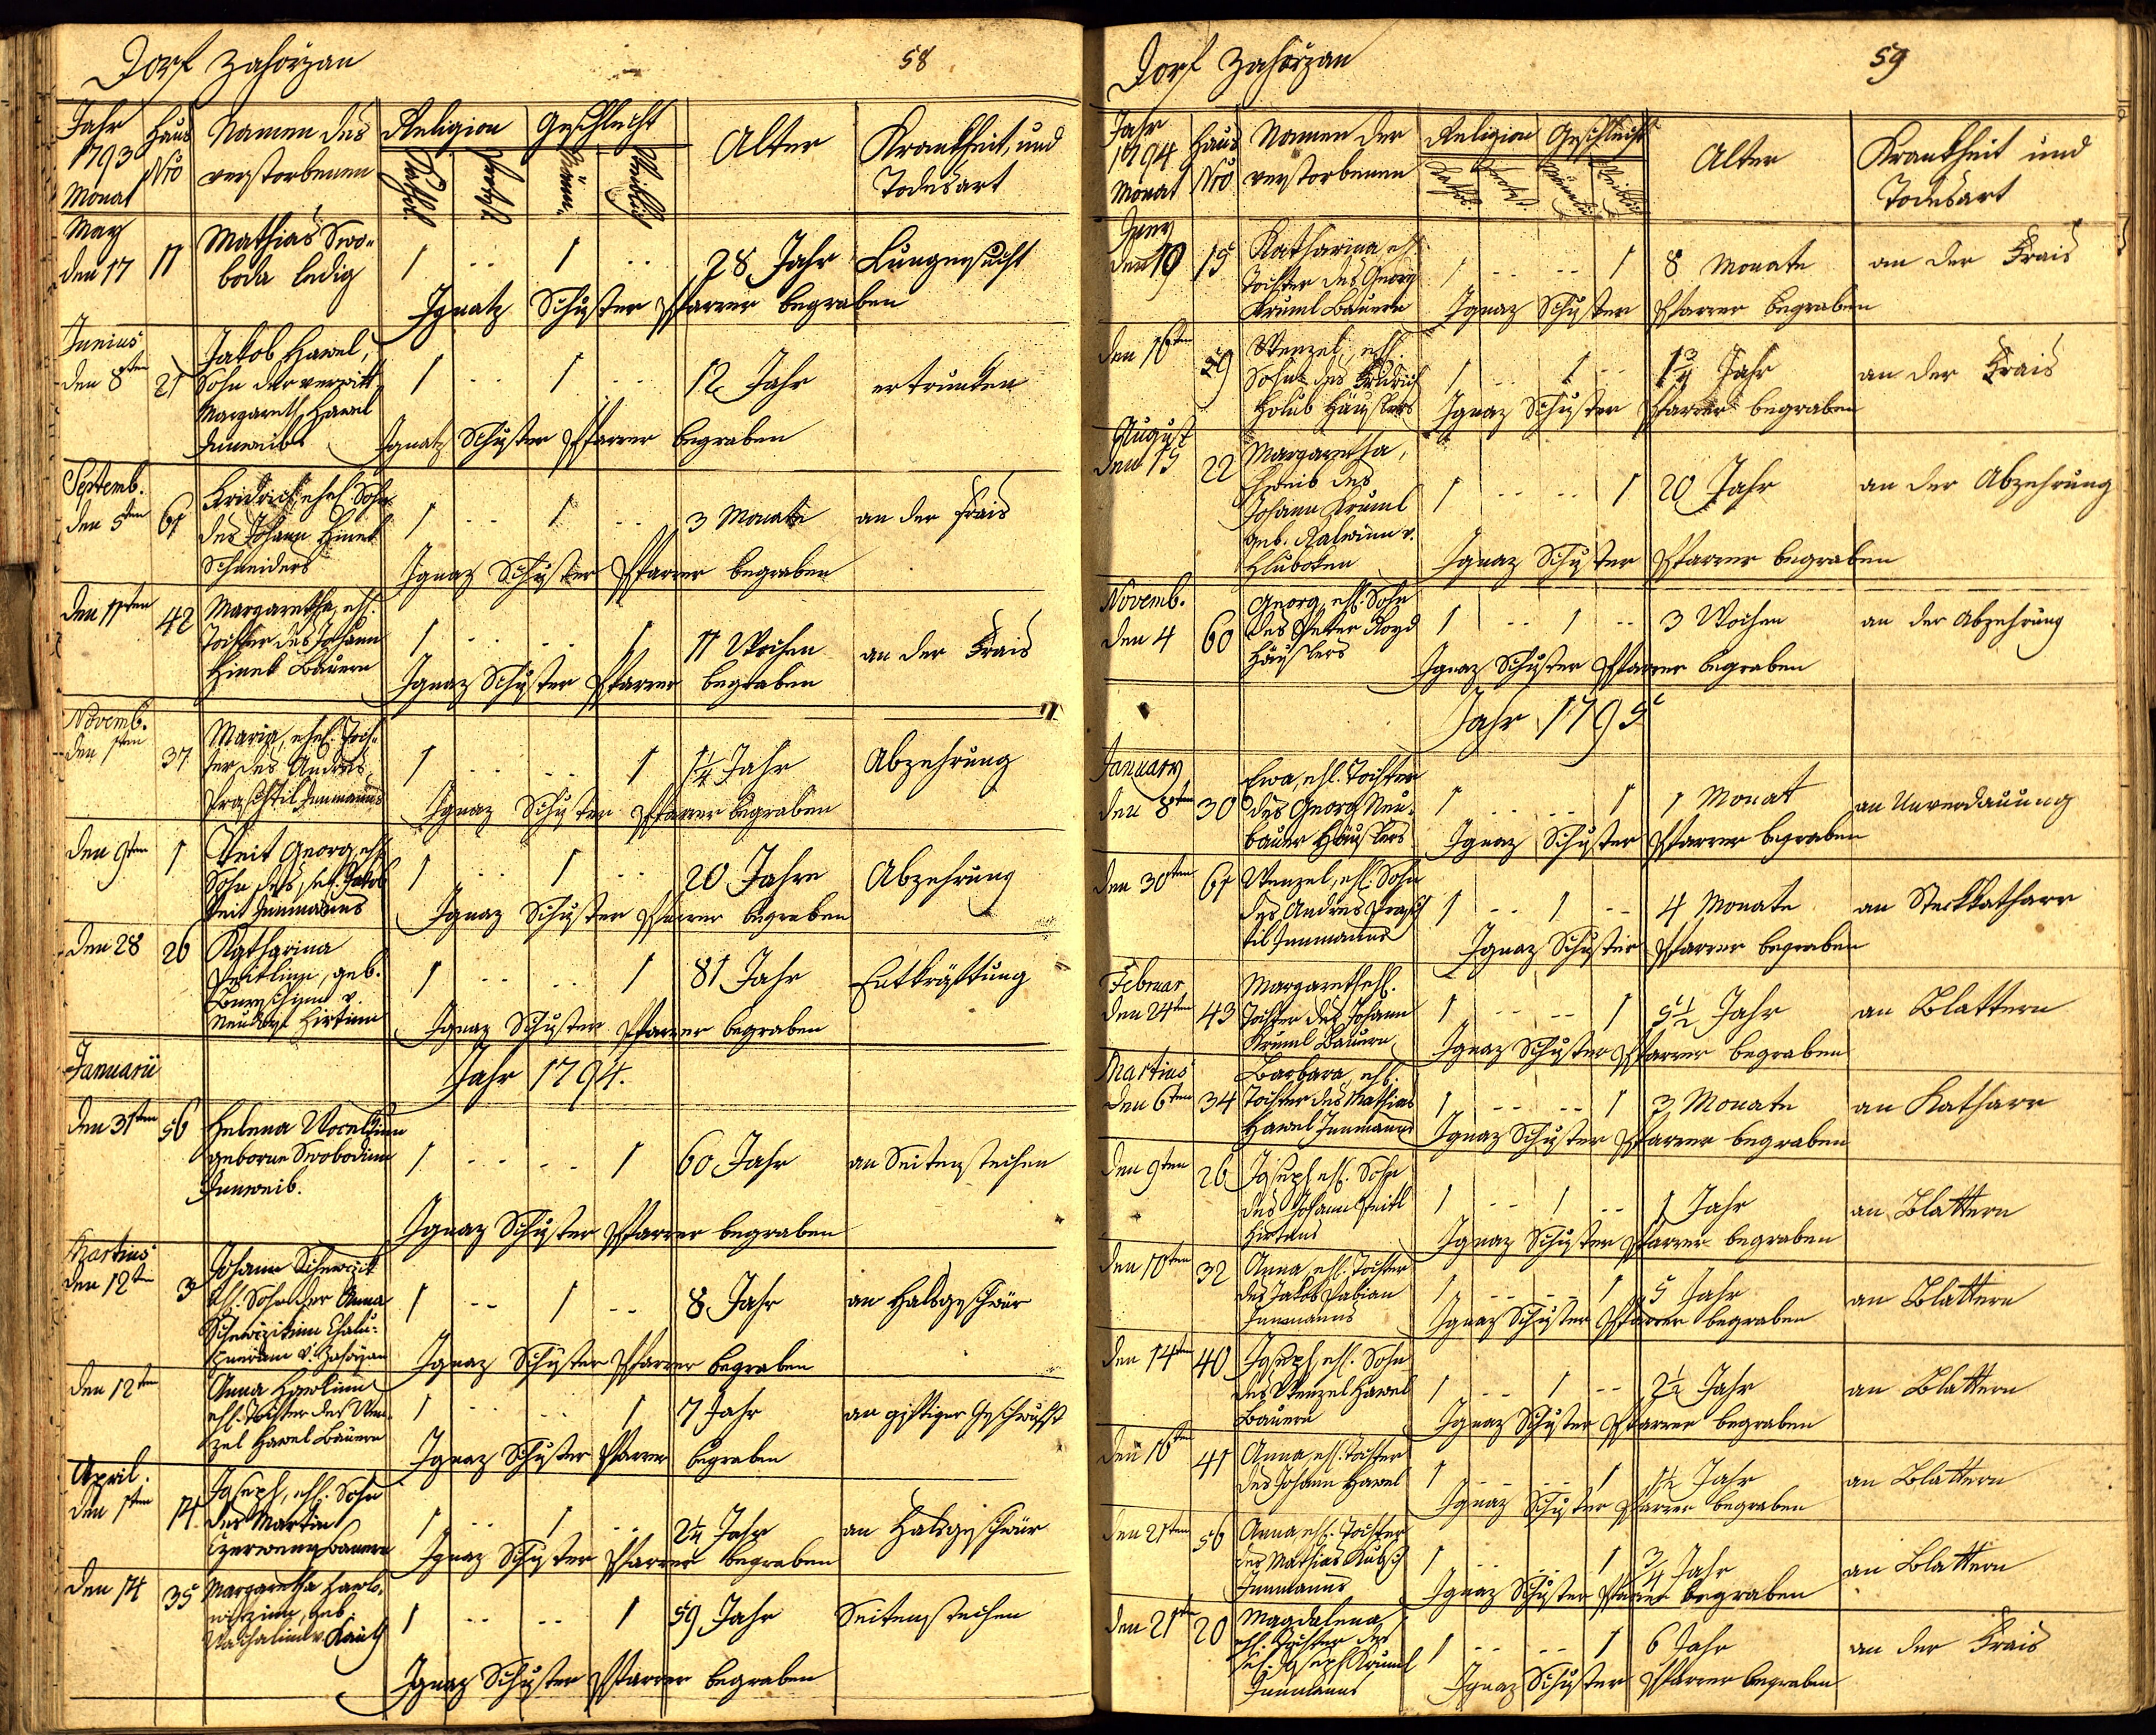 Dorf Zahořzan
58
Jahr 1793 Monat
Haus Nro
Namen des verstorbenen
Religion
Kathol.
Geschlecht
Männ.
Weiblich
Alter
Krankheit, und Todesart
May
den 17 11 Mathias Swo=
boda ledig 1 .. 1 .. 28 Jahr Lungensucht
Ignatz Schuster Pfarrer begraben
Junius
den 8ten 21 Jakob Hawel,
Sohn der verwitt.
Margareth Hawel
Innweibs 1 .. 1 .. 12 Jahr ertrunken
Ignatz Schuster Pfarrer begraben
Septemb.
den 5ten 61 Fridrich, ehel. Sohn
des Johann Hinek
Schneiders 1 .. 1 .. 3 Monate an der Frais
Ignaz Schuster Pfarrer begraben
den 11ten 42 Margaretha, ehl.
Tochter des Johann
Hinek Bauern 1 .. .. 1 11 Wochen an der Frais
Ignaz Schuster Pfarrer begraben
Novemb.
den 1ten 37 Maria, ehel. Toch=
ter des Andres
Innmanns 1 .. .. 1 1 1/4 Jahr Abzehrung
Ignaz Schuster Pfarrer begraben
den 9ten 1 Veit Georg, ehl.
Sohn des sel. Jakob
Veit Innmanns 1 .. 1 .. 20 Jahre Abzehrung
Ignaz Schuster Pfarrer begraben
den 28 26 Katharina
geb.
v.
Hirtinn 1 .. .. 1 81 Jahr Entkräftung
Ignaz Schuster Pfarrer begraben
Januarii
Jahr 1794.
den 31ten 56 Helena
geborne Swobodinn
Innweib. 1 .. .. 1 60 Jahr an Seitenstechen
Ignaz Schuster Pfarrer begraben
Martius
den 12ten 3 Johann
ehl. Sohn der Anna
v. Zahořzan 1 .. 1 .. 8 Jahr an Halsgeschwür
Ignaz Schuster Pfarrer begraben
den 12ten Anna Hawlinn
ehl. Tochter des Wen=
zel Hawel Bauern 1 .. .. 1 7 Jahr an giftiger Geschwulst
Ignaz Schuster Pfarrer begraben
April.
den 1ten 14 Joseph, ehl. Sohn
des Martin
1 .. 1 .. 2 1/4 Jahr an Halsgeschwür
Ignaz Schuster Pfarrer begraben
den 14 35 Margaretha
geb.
v. Kauth 1 .. .. 1 59 Jahr Seitenstechen
Ignaz Schuster Pfarrer begraben
Dorf Zahořzan
59
Jahr 1794 Monat
Haus Nro
Namen der verstorbenen
Religion
Kathol.
Protest.
Geschlecht
Männlich
Weiblich
Alter
Krankheit und Todesart
Juny
den 10 15 Katharina ehl.
Tochter des Georg
Kruml Bauern 1 .. .. 1 8 Monate an der Frais
Ignaz Schuster Pfarrer begraben
den 16ten 29 Wenzel, ehl.
Sohn des Fridrich
Holub Häuslers 1 .. 1 .. 1 3/4 Jahr an der Frais
Ignaz Schuster Pfarrer begraben
August
den 15 22 Margaretha,
Eheweib des
Johann Kruml
geb. v.
Hluboken 1 .. .. 1 20 Jahr an der Abzehrung
Ignaz Schuster Pfarrer begraben
Novemb.
den 4 60 Georg, ehl. Sohn
des Peter
Häuslers 1 .. 1 .. 3 Wochen an der Abzehrung
Ignaz Schuster Pfarrer begraben
Jahr 1795
January
den 8ten 30 Ewa, ehl. Tochter
des Georg Neu=
bauer Häuslers 1 .. .. 1 1 Monat an Unverdauung
Ignaz Schuster Pfarrer begraben
den 30ten 61 Wenzel, ehl. Sohn
des Andres
Innmanns 1 .. 1 .. 4 Monate an Steckkatharr
Ignaz Schuster Pfarrer begraben
Februar
den 24ten 43 Margareth ehl.
Tochter des Johann
Kruml Bauern 1 .. .. 1 5 1/2 Jahr an Blattern
Ignaz Schuster Pfarrer begraben
Martius
den 6ten 34 Barbara, ehl.
Tochter des Mathias
Hawel Innmanns 1 .. .. 1 3 Monate an Katharr
Ignaz Schuster Pfarrer begraben
den 9ten 26 Joseph, ehl. Sohn
des Johann Peitl
Hirtens 1 .. 1 .. 1 Jahr an Blattern
Ignaz Schuster Pfarrer begraben
den 10ten 32 Anna, ehl. Tochter
des Jakob Fabian
Innmanns 1 .. .. 1 5 Jahr an Blattern
Ignaz Schuster Pfarrer begraben
den 14ten 40 Joseph, ehl. Sohn
des Wenzel Hawel
Bauern 1 .. 1 .. 2 1/2 Jahr an Blattern
Ignaz Schuster Pfarrer begraben
den 16ten 41 Anna, ehl. Tochter
des Johann Hawel 1 .. .. 1 1 1/2 Jahr an Blattern
Ignaz Schuster Pfarrer begraben
den 21ten 56 Anna, ehl. Tochter
des Mathias
Innmanns 1 .. .. 1 3/4 Jahr an Blattern
Ignaz Schuster Pfarrer begraben
den 21ten 20 Magdalena
ehl. Tochter des
sel. Joseph Kruml
Innmanns 1 .. .. 1 6 Jahr an der Frais
Ignaz Schuster Pfarrer begraben